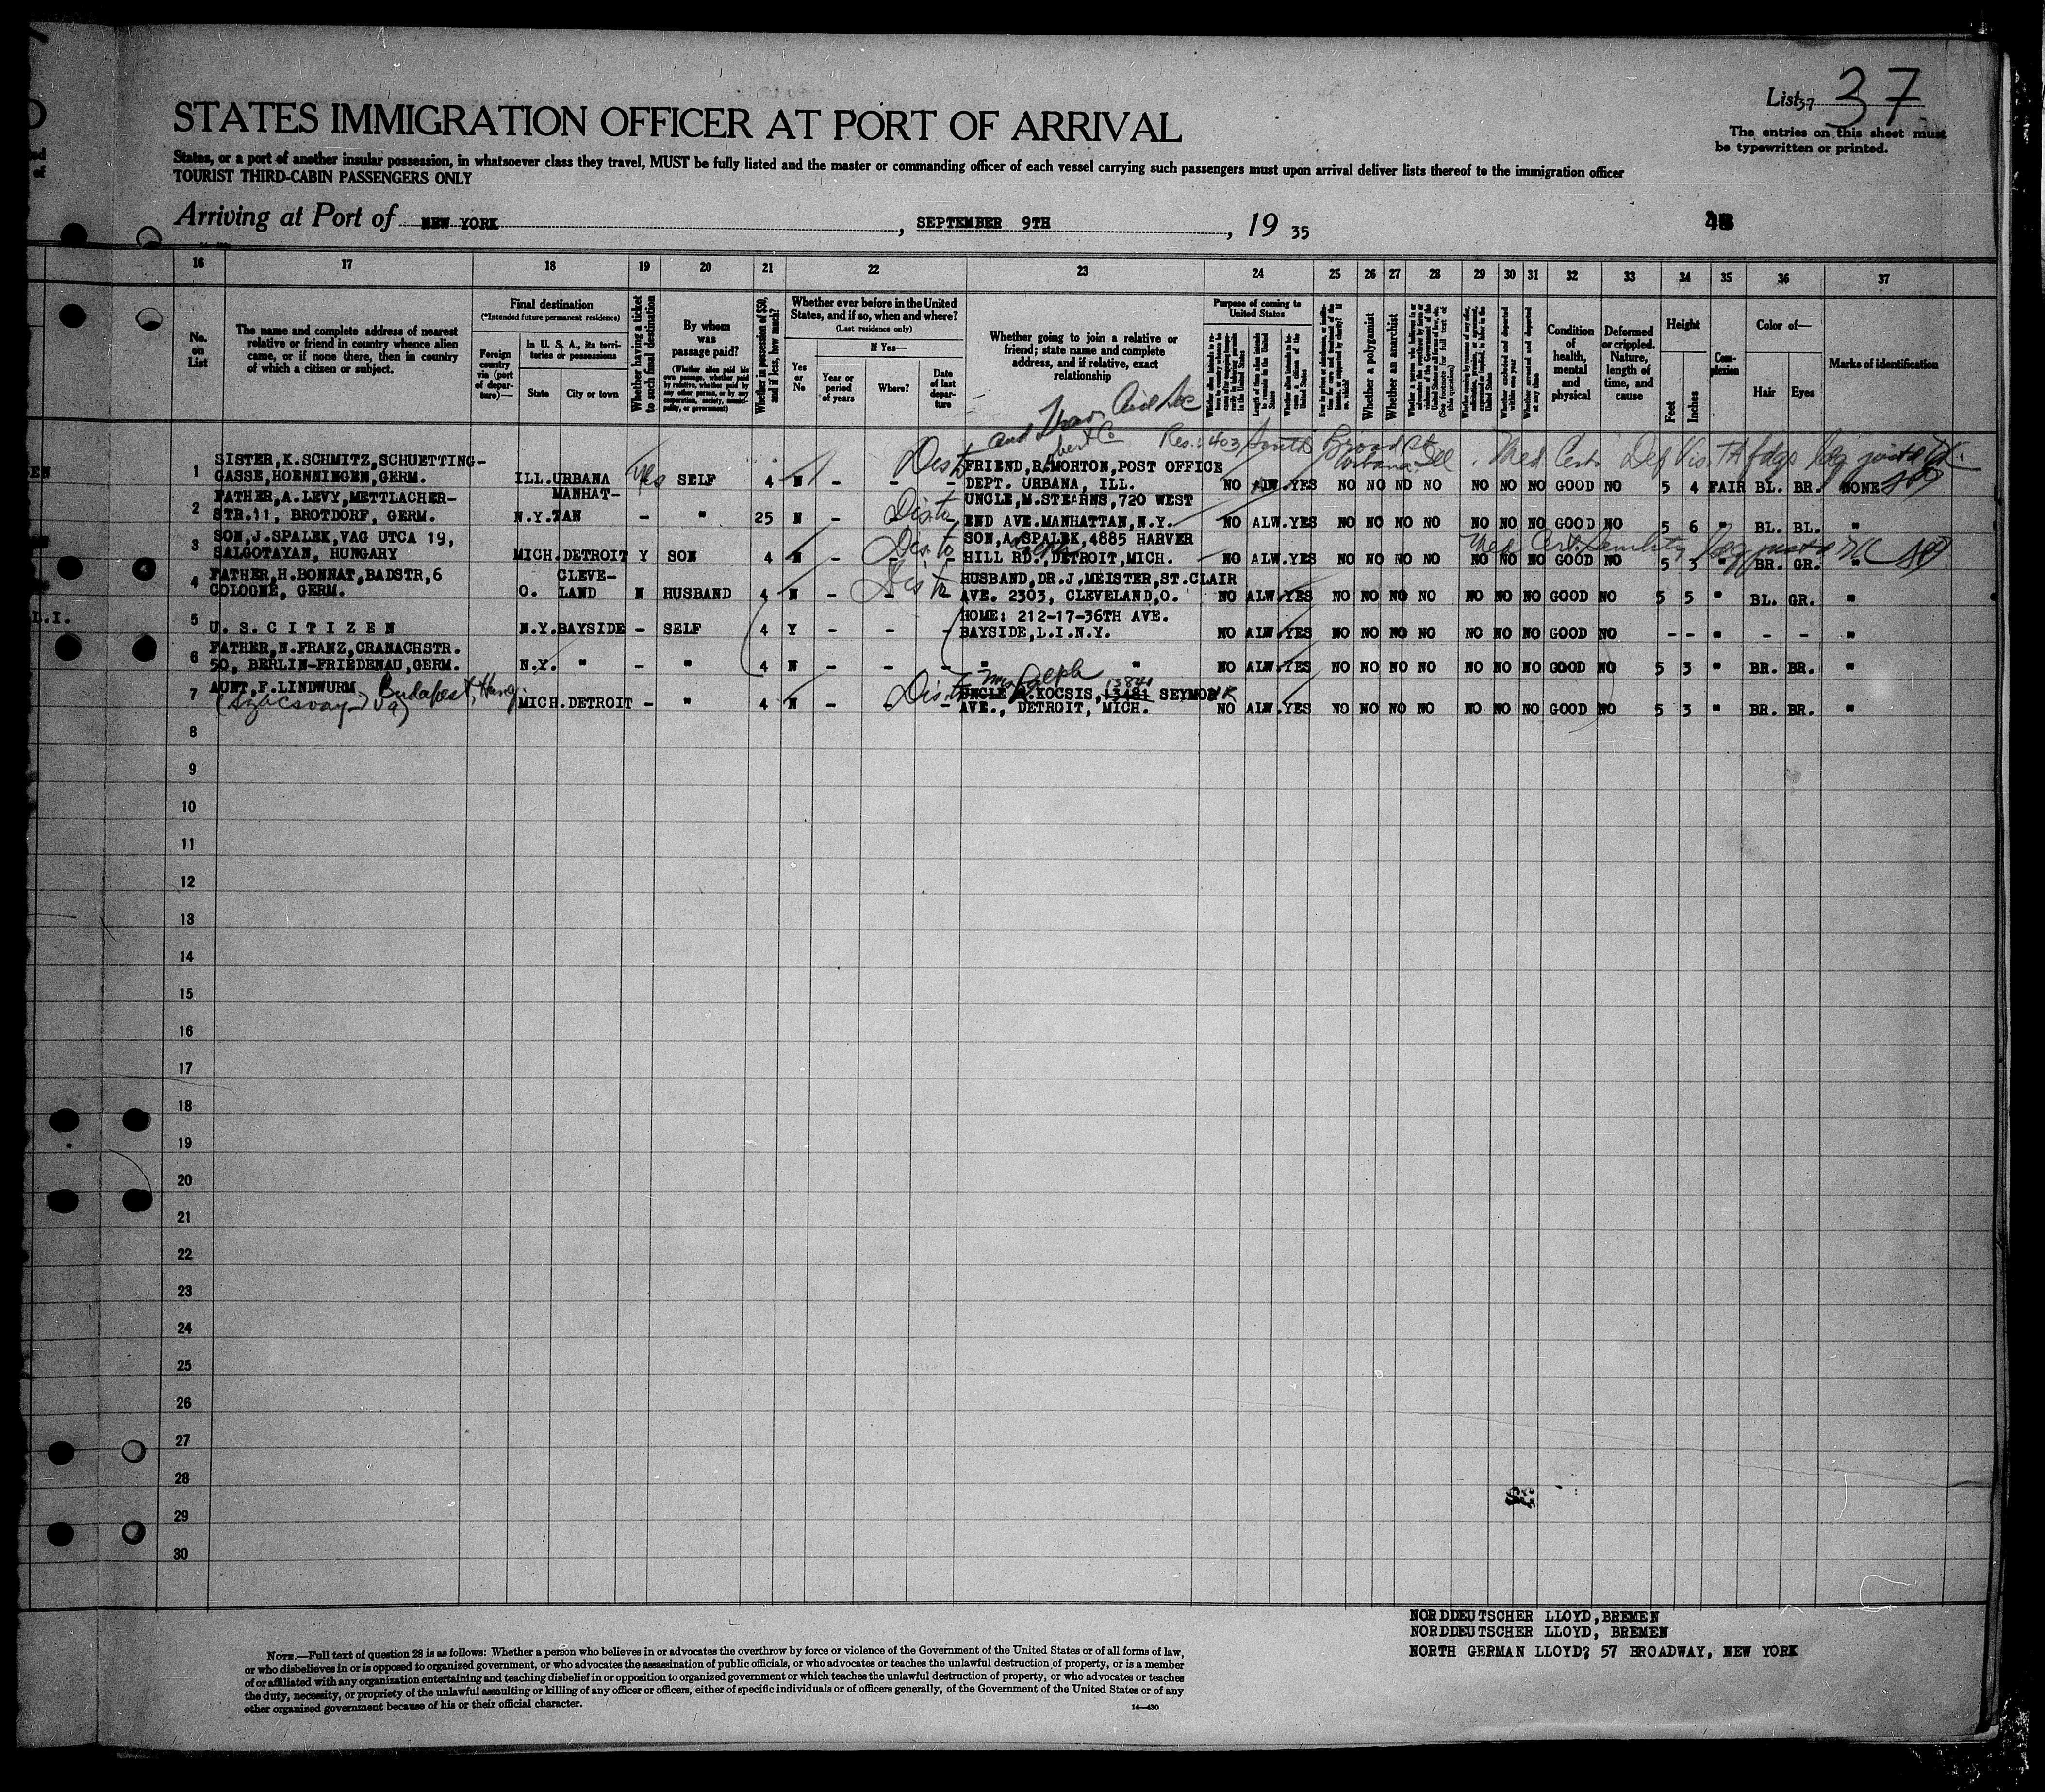 List 37 37
STATES IMMIGRATION OFFICER AT PORT OF ARRIVAL
The entries on this sheet must
be typewritten or printed.
States, or a port of another insular possession, in whatsoever class they travel, MUST be fully listed and the master or commanding officer of each vessel carrying such passengers must upon arrival deliver lists thereof to the immigration officer
TOURIST THIRD-CABIN PASSENGERS ONLY
Arriving at Port of NEW YORK, SEPTEMBER 9TH, 19 35
16 17 18 19 20 21 22 23 24 25 26 27 28 29 30 31 32 33 34 35 36 37
No.
on
List
The name and complete address of nearest
relative or friend in country whence alien
came, or if none there, then in country
of which a citizen or subject.
Final destination
(*Intended future permanent residence)
Foreign
country
via (port
of depar-
ture)—
In U. S. A., its terri-
tories or possessions
State
City or town
Whether having a ticket
to such final destination
By whom
was
passage paid?
(Whether alien paid his
own passage, whether paid
by relative, whether paid by
any other person, or by any
corporation, society, munici-
pality, or government)
Whether in possession of $50,
and if less, how much?
Whether ever before in the United
States, and if so, when and where?
(Last residence only)
Yes
or
No
If Yes—
Year or
period
of years
Where?
Date
of last
depar-
ture
Whether going to join a relative or
friend; state name and complete
address, and if relative, exact
relationship
Purpose of coming to
United States
Whether a polygamist
Whether an anarchist
Whether arrested and deported
at any time
Condition
of
health,
mental
and
physical
Deformed
or crippled.
Nature,
length of
time, and
cause
Height
Feet
Inches
Com-
plexion
Color of—
Hair
Eyes
Marks of identification
and Trav. Aid Soc
Res: 403 South Broad St
Urbana Ill. Med Cert Def Vis.
1 SISTER,K.SCHMITZ,SCHUETTING-
GASSE,HOENNINGEN,GERM. ILL. URBANA yes SELF 4 N - - - Dis to FRIEND,R.MORTON,POST OFFICE
DEPT. URBANA, ILL. NO ALW.YES NO NO NO NO NO NO NO GOOD NO 5 4 FAIR BL. BR. NONE
2 FATHER,A.LEVY,METTLACHER-
STR.11, BROTDORF, GERM. N.Y. MANHAT-
TAN - " 25 N - Dis to UNCLE,M.STEARNS,720 WEST
END AVE.MANHATTAN,N.Y. NO ALW.YES NO NO NO NO NO NO NO GOOD NO 5 6 " BL. BL. "
3 SON,J.SPALEK,VAG UTCA 19,
SALGOTAYAN, HUNGARY MICH. DETROIT Y SON 4 N - Dis to SON,A.SPALEK,4885 HARVER
HILL RD.,DETROIT,MICH. NO ALW.YES NO NO NO NO NO NO NO GOOD NO 5 3 " BR. GR. "
Med Cert. Senility
4 FATHER,H.BONNAT,BADSTR,6
COLOGNE, GERM. O. CLEVE-
LAND N HUSBAND 4 N - Dis to HUSBAND,DR.J.MEISTER,ST.CLAIR
AVE. 2303, CLEVELAND,O. NO ALW.YES NO NO NO NO NO NO NO GOOD NO 5 5 " BL. GR. "
5 U. S. C I T I Z E N N.Y. BAYSIDE - SELF 4 Y - - - HOME: 212-17-36TH AVE.
BAYSIDE,L.I.N.Y. NO ALW.YES NO NO NO NO NO NO NO GOOD NO - - " - - "
6 FATHER,N.FRANZ,CRANACHSTR.
50, BERLIN-FRIEDENAU,GERM. N.Y. " - " 4 N - - - " " NO ALW.YES NO NO NO NO NO NO NO GOOD NO 5 3 " BR. BR. "
7 AUNT,F.LINDWURM Budapest, Hung.
MICH. DETROIT - " 4 N - - Dis to Mrs Ralph
UNCLE R.KOCSIS, 13481 13841 SEYMOUR
AVE., DETROIT, MICH. NO ALW.YES NO NO NO NO NO NO NO GOOD NO 5 3 " BR. BR. "
8
9
10
11
12
13
14
15
16
17
18
19
20
21
22
23
24
25
26
27
28
29
30
NORDDEUTSCHER LLOYD,BREMEN
NORDDEUTSCHER LLOYD, BREMEN
NORTH GERMAN LLOYD, 57 BROADWAY, NEW YORK
NOTE.—Full text of question 28 is as follows: Whether a person who believes in or advocates the overthrow by force or violence of the Government of the United States or of all forms of law,
or who disbelieves in or is opposed to organized government, or who advocates the assassination of public officials, or who advocates or teaches the unlawful destruction of property, or is a member
of or affiliated with any organization entertaining and teaching disbelief in or opposition to organized government or which teaches the unlawful destruction of property, or who advocates or teaches
the duty, necessity, or propriety of the unlawful assaulting or killing of any officer or officers, either of specific individuals or of officers generally, of the Government of the United States or of any
other organized government because of his or their official character.
14—430